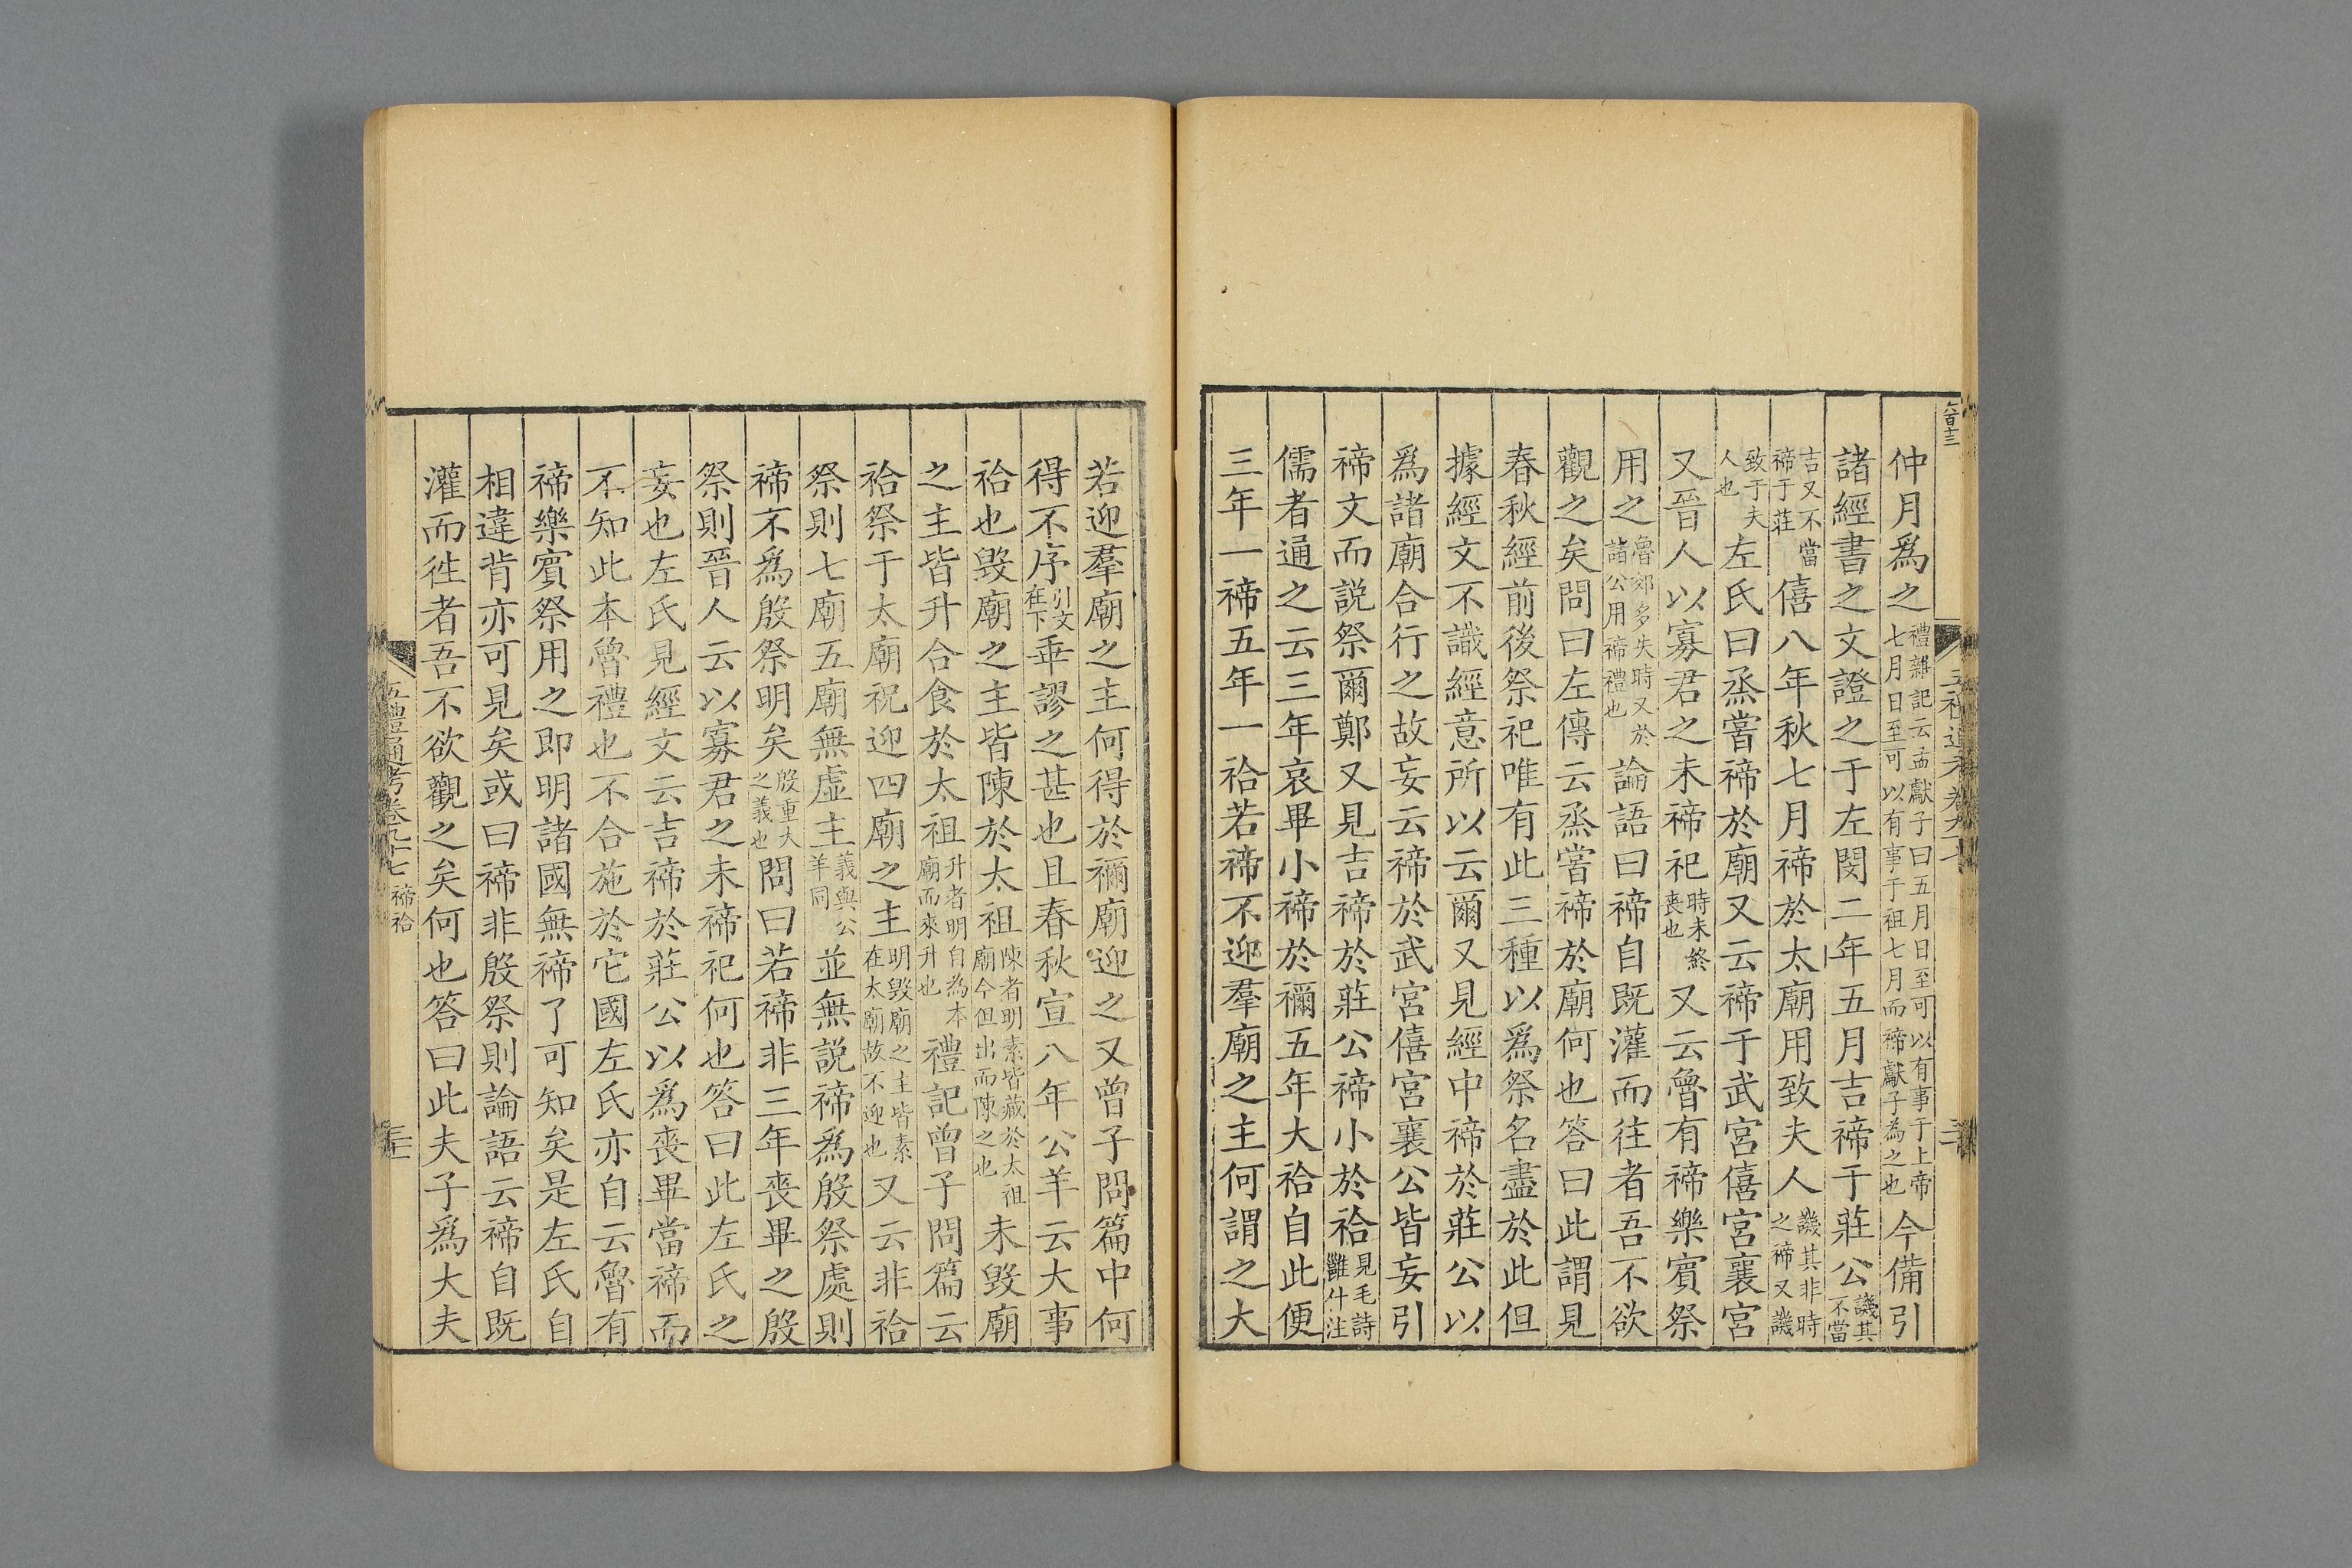 仲月爲之禮雜記云孟獻子曰五月日至可以有事于上帝七月日至可以有事于祖七月而禘獻子為之也今備引
諸經書之文證之于左閔二年五月吉禘于莊公譏其不當
吉又不當禘于莊僖八年秋七月禘於太廟用致夫人譏其非時之禘又譏
致于夫人也左氏曰烝嘗禘於廟又云禘于武宮僖宮襄宮
又晉人以寡君之未禘祀時未終喪也又云魯有禘樂賓祭
用之魯郊多失時又於諸公用禘禮也論語曰禘自既灌而往者吾不欲
觀之矣問曰左傳云烝嘗禘於廟何也答曰此謂見
春秋經前後祭祀唯有此三種以爲祭名盡於此但
據經文不識經意所以云爾又見經中禘於莊公以
爲諸廟合行之故妄云禘於武宮僖宮襄公皆妄引
禘文而說祭爾鄭又見吉禘於莊公禘小於祫見毛詩雝什注
儒者通之云三年哀畢小禘於禰五年大祫自此便
三年一禘五年一祫若禘不迎羣廟之主何謂之大
若迎羣廟之主何得於禰廟迎之又曾子問篇中何
得不序引文在下乖謬之甚也且春秋宣八年公羊云大事
祫也毀廟之主皆陳於太祖陳者明素皆藏於太祖廟今但出而陳之也未毀廟
之主皆升合食於太祖升者明自為本廟而來升也禮記曾子問篇云
祫祭于太廟祝迎四廟之主明毀廟之主皆素在太廟故不迎也又云非祫
祭則七廟五廟無虛主義與公羊同並無說禘爲殷祭處則
禘不爲殷祭明矣殷重大之義也問曰若禘非三年喪畢之殷
祭則晉人云以寡君之未禘祀何也答曰此左氏之
妄也左氏見經文云吉禘於莊公以爲喪畢當禘而
不知此本魯禮也不合施於它國左氏亦自云魯有
禘樂賓祭用之即明諸國無禘了可知矣是左氏自
相違背亦可見矣或曰禘非殷祭則論語云禘自既
灌而往者吾不欲觀之矣何也答曰此夫子爲大夫
五禮通考卷九十七 禘祫